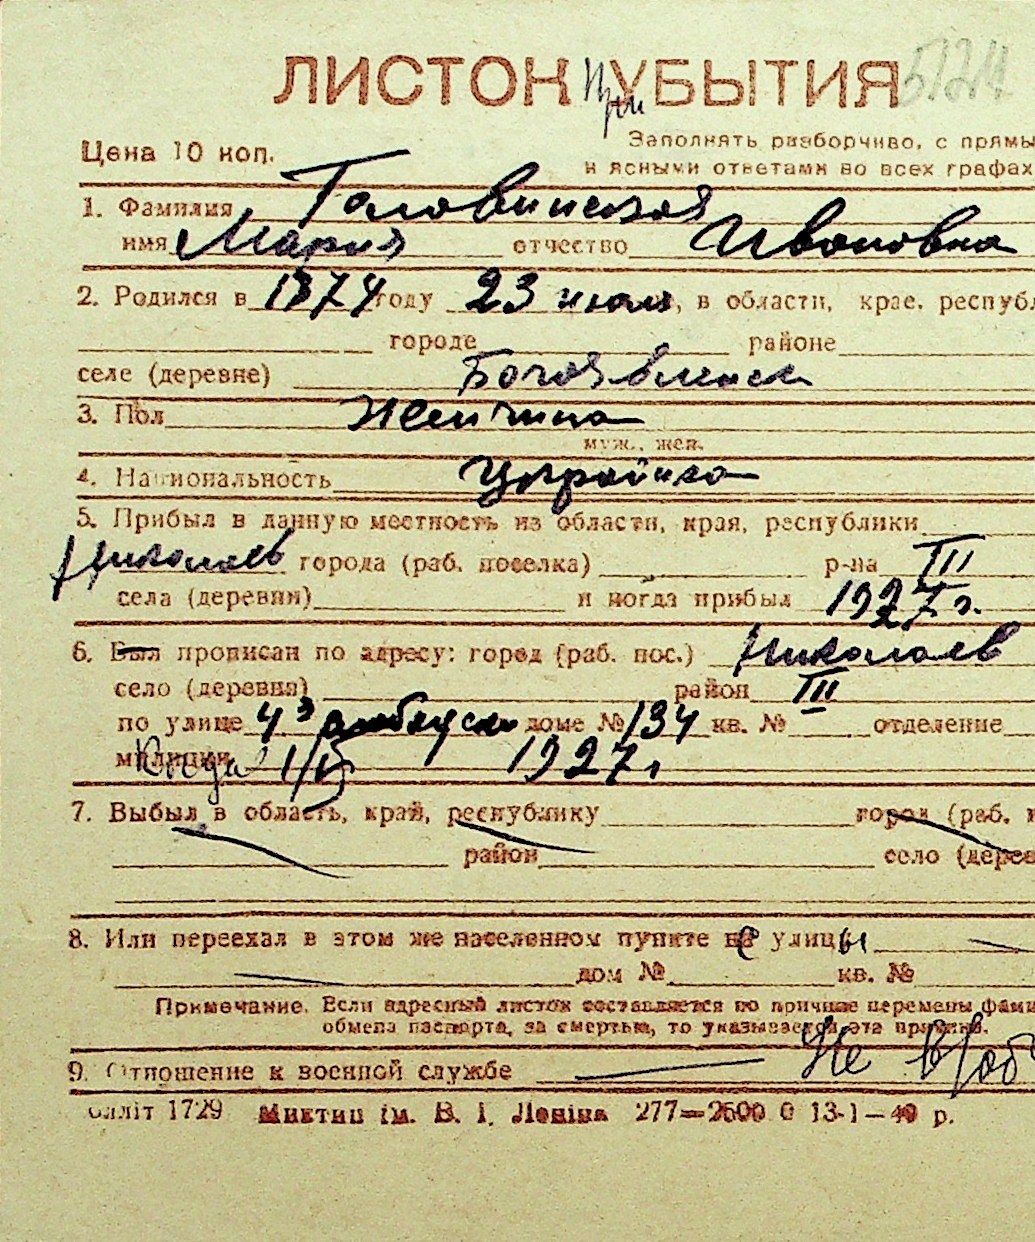 ЛИСТОК При УБЫТИЯ 5124
Цена 10 коп.
Заполнять разборчиво, с прямы
и ясными ответами во всех графах
1. Фамилия Головинская
имя Мария отчество Ивановна
2. Родился в 1874 году 23 июля, в области, крае, республ
городе районе
селе (деревне) Богоявленск
3. Пол Женщина
муж., жен.
4. Национальность Украинка
5. Прибыл в данную местность из области, края, республики
Николаев города (раб. поселка) р-на III
села (деревни) и когда прибыл 1927 г.
6. Был прописан по адресу: город (раб. пос.) Николаев
село (деревня) район III
по улице 4я доме № 134 кв. № отделение
милиции Когда 1927 г.
7. Выбыл в область, край, республику город (раб. п
район село (дерев
8. Или переехал в этом же населенном пункте с улицы
дом № кв. №
Примечание. Если адресный листок составляется по причине перемены фами
обмена паспорта, за смертью, то указывается эта причина.
9. Отношение к военной службе — Не в/об
блліт 1729 Миктип ім. В. І. Леніна 277—2500 0 13-1—40 р.